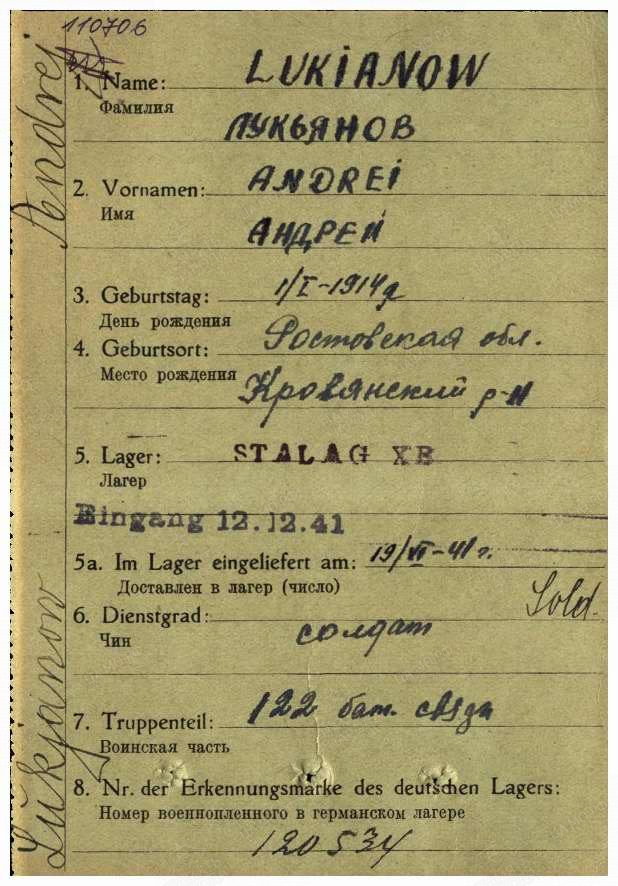 110706
1. Name: LUKIANOW
Фамилия
ЛУКЬЯНОВ
2. Vornamen: ANDREI
Имя
АНДРЕЙ
3. Geburtstag: 1/I-1914 г
День рождения
4. Geburtsort: Ростовская обл.
Место рождения Кровянский р-н
5. Lager: STALAG XB
Лагер
Eingang 12.12.41
5a. Im Lager eingeliefert am: 19/VI-41 г.
Доставлен в лагер (число)
6. Dienstgrad: Sold.
Чин солдат
7. Truppenteil: 122 бат. связи
Воинская часть
8. Nr. der Erkennungsmarke des deutschen Lagers:
Номер военнопленного в германском лагере
120534
Lukjanow Andrej